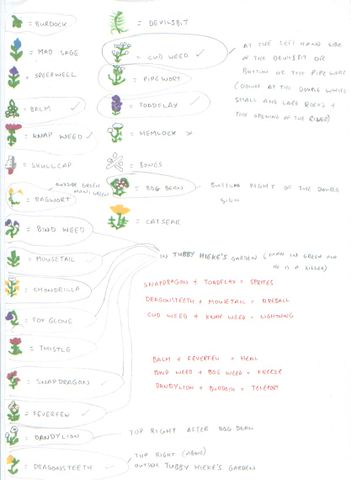 = BURDOCK
= MAD SAGE
= SPEEDWELL
= BALM ✓
= KNAP WEED ✓
= SKULLCAP
= RAGWORT
OUTSIDE GREEN
MANS GREEN
= BIND WEED
= MOUSETAIL
= CHONDRILLA
= FOX GLOVE
= THISTLE
= SNAPDRAGON ✓
= FEVERFEW ✓
= DANDYLION
= DRAGONSTEETH ✓
= DEVILSBIT
= CUD WEED ✓
= PIPEWORT
= TOADFLAX ✓
= HEMLOCK
= BONES
= BOG BEAN
= CATSEAR
AT THE LEFT HAND SIDE
OF THE DEVILSBIT OR
BOTTOM OF THE PIPE WORT
(DOWN AT THE DOUBLE
SMALL AND ROCKS +
THE OPENING OF THE RIVER)
BOTTOM RIGHT OF THE DOUBLE
IN TUBBY HICKE'S GARDEN (MAN IN GREEN AND
HE IS A KILLER)
SNAPDRAGON + TOADFLAX = SPRITES
DRAGONSTEETH + MOUSETAIL = FIREBALL
CUD WEED + KNAP WEED = LIGHTNING
BALM + FEVERFEW = HEAL
BIND WEED + BOG WEED = FREEZE
DANDYLION + BURDOCK = TELEPORT
TOP RIGHT AFTER BOG BEAN
TOP RIGHT (ABOVE)
OUTSIDE TUBBY HICKE'S GARDEN